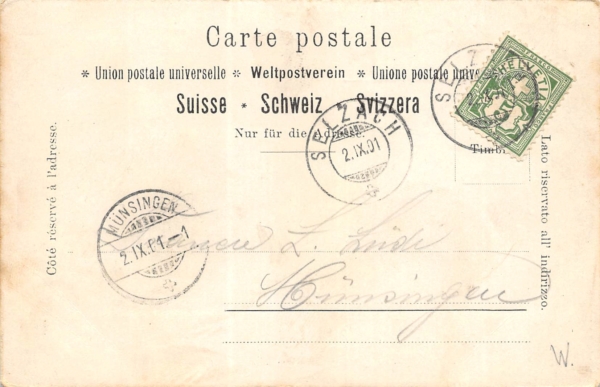 Carte postale
* Union postale universelle * Weltpostverein * Unione postale
Suisse * Schweiz * Svizzera
Nur für die Adresse.
Timbre
HELVETIA
SELZACH
SELZACH
2.IX.01
MÜNSINGEN
2.IX.01.–1
L. Lüdi
Münsingen
Côté réservé à l'adresse.
Lato riservato all' indirizzo.
W.